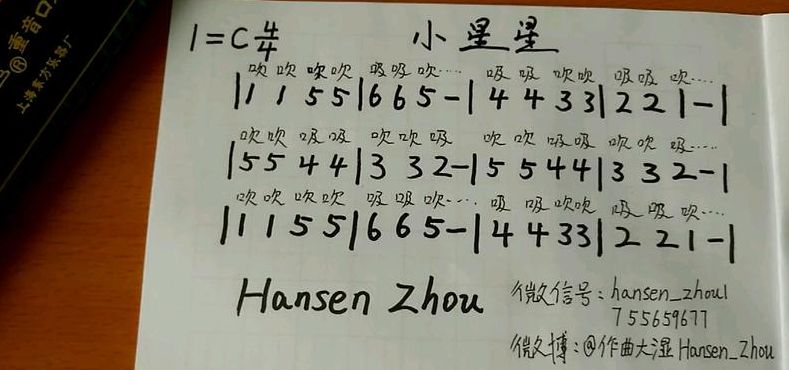 重音口
上海东方乐器厂
1=C 4/4 小星星
吹吹吹吹 吸吸吹···· 吸吸吹吹 吸吸吹····
|1 1 5 5|6 6 5-|4 4 3 3|2 2 1-|
吹吹吸吸 吹吹吸 吹吹吸吸 吹吹吸····
|5 5 4 4|3 3 2-|5 5 4 4|3 3 2-|
吹吹吹吹 吸吸吹···· 吸吸吹吹 吸吸吹····
|1 1 5 5|6 6 5-|4 4 3 3|2 2 1-|
Hansen Zhou
微信号:hansen_zhou1
755659677
微博:@作曲大湿 Hansen_Zhou